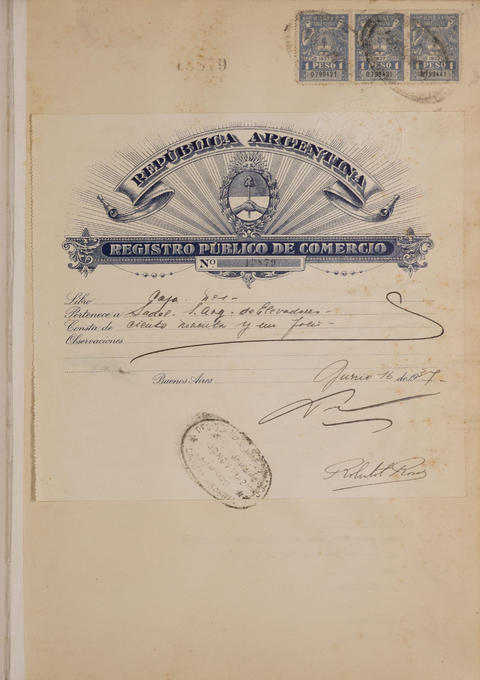 13879
1 PESO 1 PESO 1 PESO
REPÚBLICA ARGENTINA
REGISTRO PÚBLICO DE COMERCIO
Nº 13879
Libro Caja nos-
Pertenece a Sadel- S. Arg. de Elevadores-
Consta de ciento noventa y un folio
Observaciones
Buenos Aires Junio 16 de 1937.